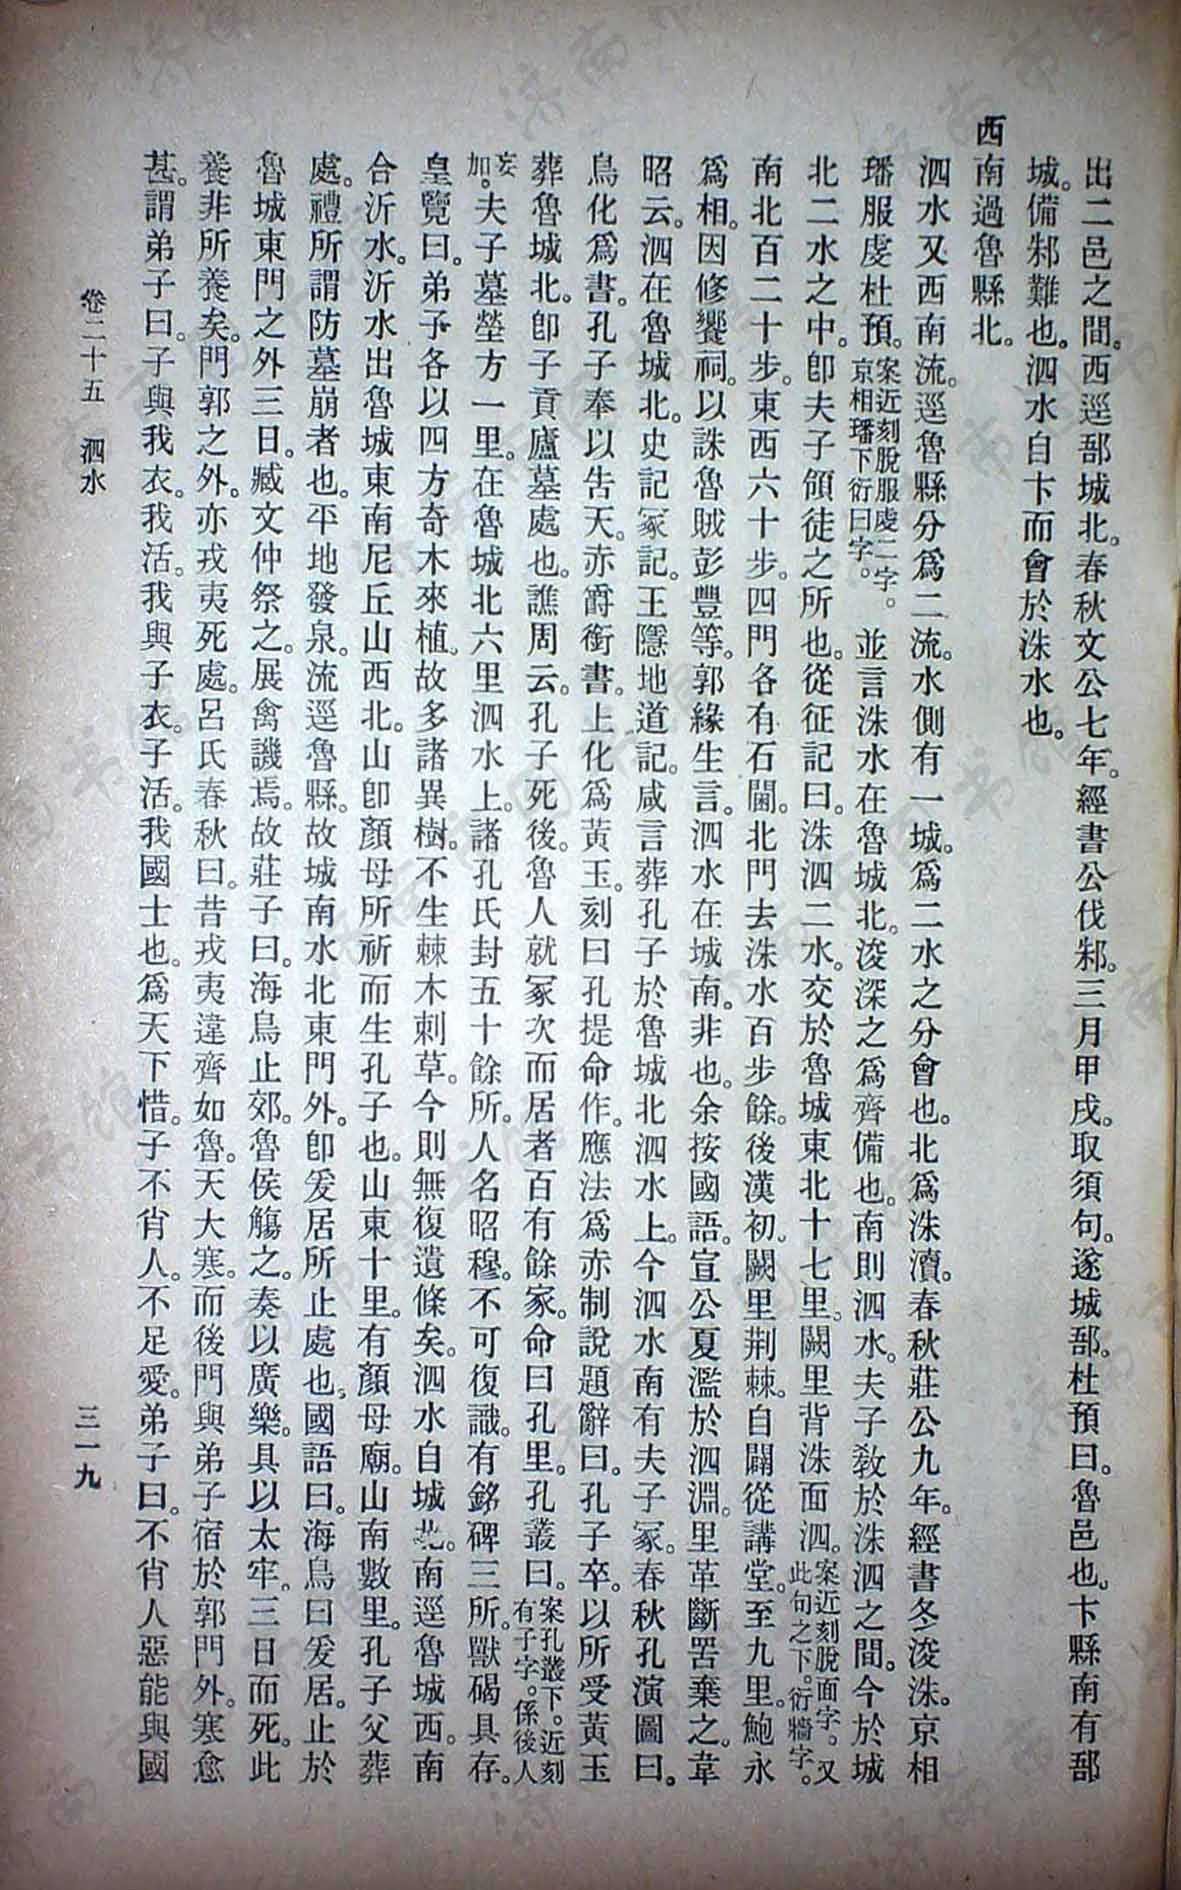 出二邑之間。西逕郚城北。春秋文公七年。經書公伐邾。三月甲戌。取須句。遂城郚。杜預曰。魯邑也。卞縣南有郚
城。備邾難也。泗水自卞而會於洙水也。
西南過魯縣北。
泗水又西南流。逕魯縣分爲二流。水側有一城。爲二水之分會也。北爲洙瀆。春秋莊公九年。經書冬浚洙。京相
璠服虔杜預。案近刻脫服虔二字。京相璠下衍曰字。並言洙水在魯城北。浚深之爲齊備也。南則泗水。夫子教於洙泗之間。今於城
北二水之中。卽夫子領徒之所也。從征記曰。洙泗二水。交於魯城東北十七里。闕里背洙面泗。案近刻脫面字。又此句之下。衍牆字。
南北百二十步。東西六十步。四門各有石閫。北門去洙水百步餘。後漢初。闕里荆棘。自闢從講堂。至九里。鮑永
爲相。因修饗祠。以誅魯賊彭豐等。郭緣生言。泗水在城南。非也。余按國語。宣公夏濫於泗淵。里革斷罟棄之。韋
昭云。泗在魯城北。史記冢記。王隱地道記。咸言葬孔子於魯城北泗水上。今泗水南有夫子冢。春秋孔演圖曰。
鳥化爲書。孔子奉以告天。赤爵銜書。上化爲黃玉。刻曰孔提命作。應法爲赤制說題辭曰。孔子卒。以所受黃玉
葬魯城北。卽子貢廬墓處也。譙周云。孔子死後。魯人就冢次而居者百有餘家。命曰孔里。孔叢曰。案孔叢下。近刻有子字。係後人
妄加。夫子墓塋方一里。在魯城北六里泗水上。諸孔氏封五十餘所。人名昭穆。不可復識。有銘碑三所。獸碣具存。
皇覽曰。弟子各以四方奇木來植。故多諸異樹。不生棘木刺草。今則無復遺條矣。泗水自城北。南逕魯城西。南
合沂水。沂水出魯城東南尼丘山西北。山卽顏母所祈而生孔子也。山東十里。有顏母廟。山南數里。孔子父葬
處。禮所謂防墓崩者也。平地發泉。流逕魯縣。故城南水北東門外。卽爰居所止處也。國語曰。海鳥曰爰居。止於
魯城東門之外三日。臧文仲祭之。展禽譏焉。故莊子曰。海鳥止郊。魯侯觴之。奏以廣樂。具以太牢。三日而死。此
養非所養矣。門郭之外。亦戎夷死處。呂氏春秋曰。昔戎夷違齊如魯。天大寒。而後門與弟子宿於郭門外。寒愈
甚。謂弟子曰。子與我衣。我活。我與子衣。子活。我國士也。爲天下惜。子不肖人。不足愛。弟子曰。不肖人惡能與國
卷二十五 泗水
三一九